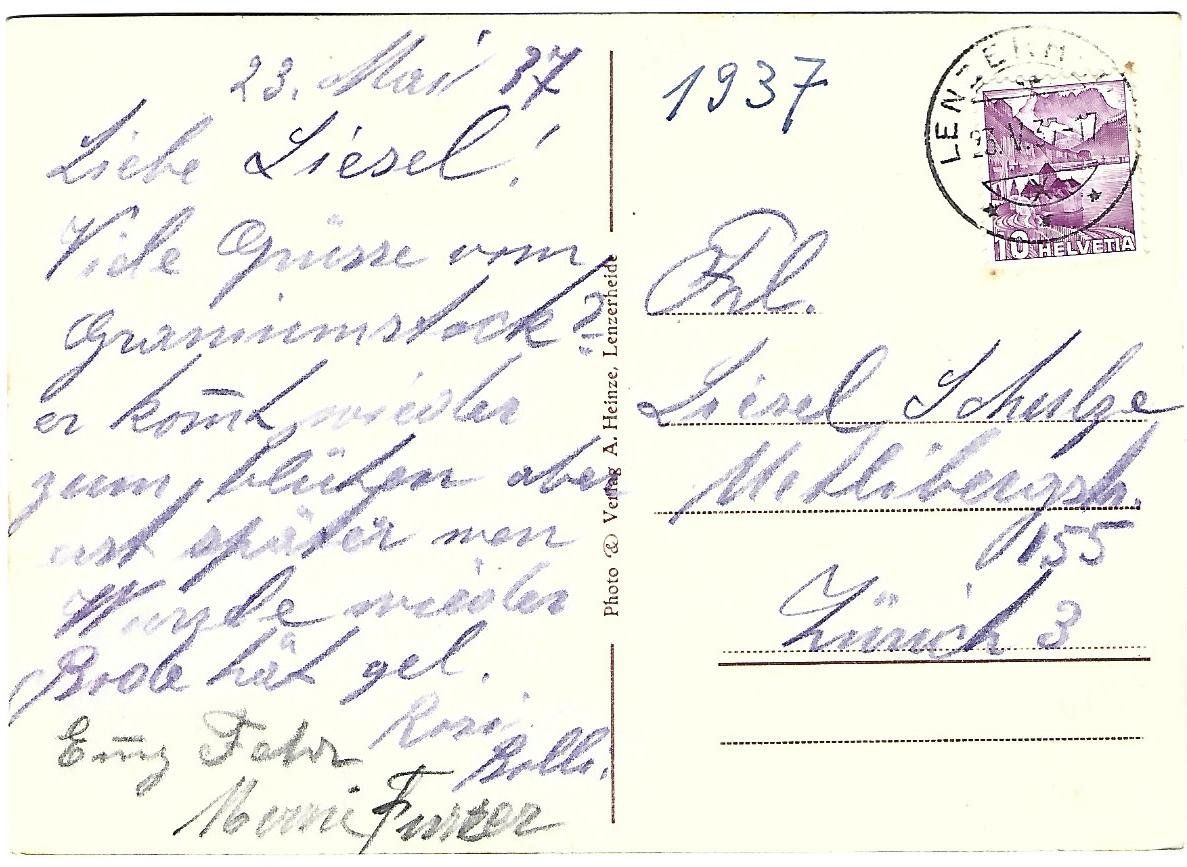 23. Mai 37
Liebe Liesel!
Viele Grüsse vom
Graniumstock?
er kom̄t wieder
zum blühen aber
erst später wen
Wurzle wieder
Bode hät gel.
Rosi
Bolli.
Emy Fehr
Furrer
Photo & Verlag A. Heinze, Lenzerheide
1937
LENZERH
23.V.37-17
10 HELVETIA
Frl.
Liesel Schulze
155
Zürich 3